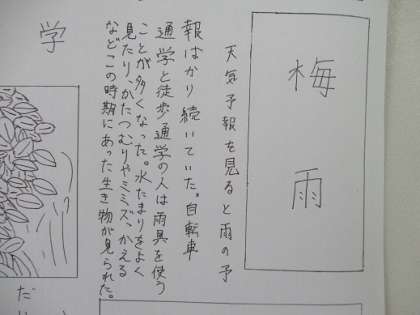 梅雨
天気予報を見ると雨の予
報ばかり続いていた。自転車
通学と徒歩通学の人は雨具を使う
ことが多くなった。水たまりをよく
見たり、かたつむりやミミズ、かえる
などこの時期にあった生き物が見られた。
学
だ